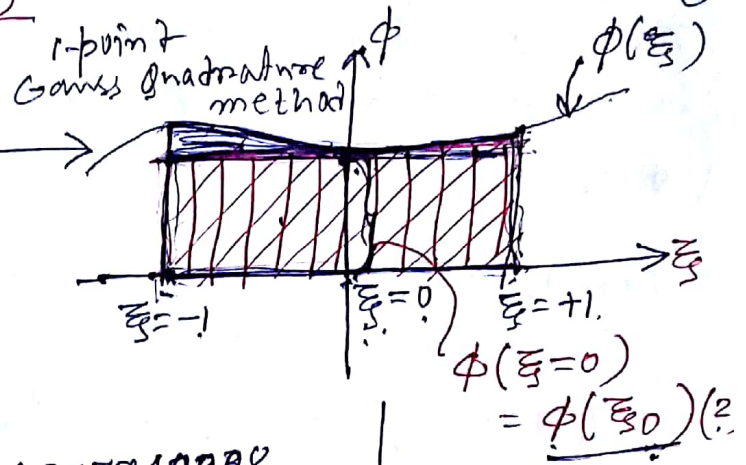 1-point
Gauss Quadrature
method
ϕ
ϕ(ξ)
ξ
ξ=-1
ξ=0
ξ=+1.
ϕ(ξ=0)
= ϕ(ξ0)(2